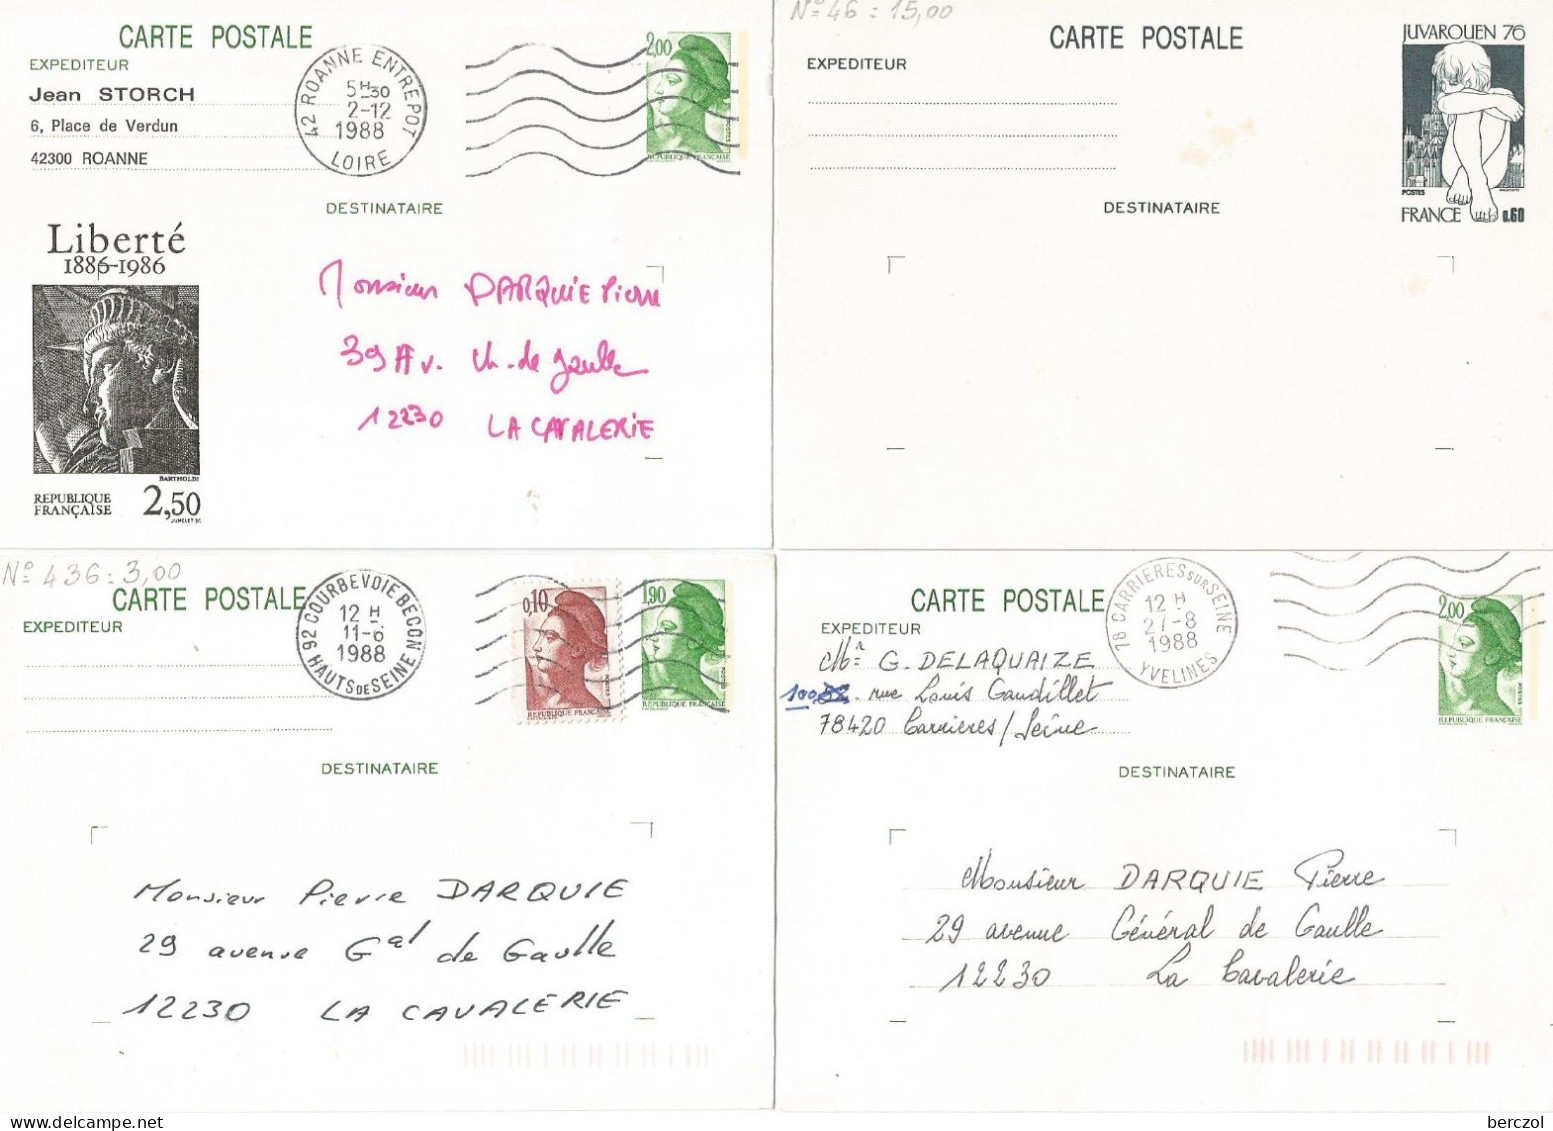 CARTE POSTALE
EXPEDITEUR
Jean STORCH
6, Place de Verdun
42300 ROANNE
42 ROANNE ENTREPOT
5H30
2-12
1988
LOIRE
2,00
REPUBLIQUE FRANÇAISE
DESTINATAIRE
Liberté
1886-1986
BARTHOLDI
REPUBLIQUE
FRANÇAISE
2,50
JUMELET SC
Monsieur DARQUIE Pierre
39 Av. Ch. de Gaulle
12230 LA CAVALERIE
N° 46 : 15,00
CARTE POSTALE
EXPEDITEUR
DESTINATAIRE
JUVAROUEN 76
POSTES
FRANCE 0.60
N° 436 : 3,00
CARTE POSTALE
EXPEDITEUR
92 COURBEVOIE BECON
12 H
11-6
1988
HAUTS DE SEINE
0,10
REPUBLIQUE FRANÇAISE
1,90
REPUBLIQUE FRANÇAISE
DESTINATAIRE
Monsieur Pierre DARQUIE
29 avenue Gal de Gaulle
12230 LA CAVALERIE
CARTE POSTALE
EXPEDITEUR
Mr G. DELAQUAIZE
100 rue Louis Gaudillet
78420 Carrieres/Seine
78 CARRIERES SUR SEINE
12 H
27-8
1988
YVELINES
2,00
REPUBLIQUE FRANÇAISE
DESTINATAIRE
Monsieur DARQUIE Pierre
29 avenue Général de Gaulle
12230 La Cavalerie
berczol